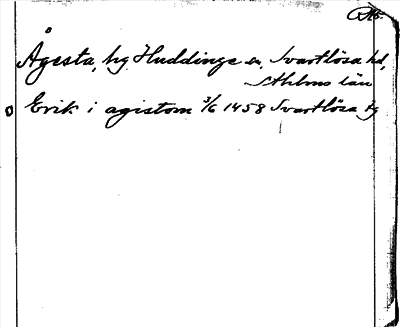 Ågesta, hg, Huddinge sn, Svartlösa hd,
Sthlms län
Erik i agistom 3/6 1458 Svartlösa tg